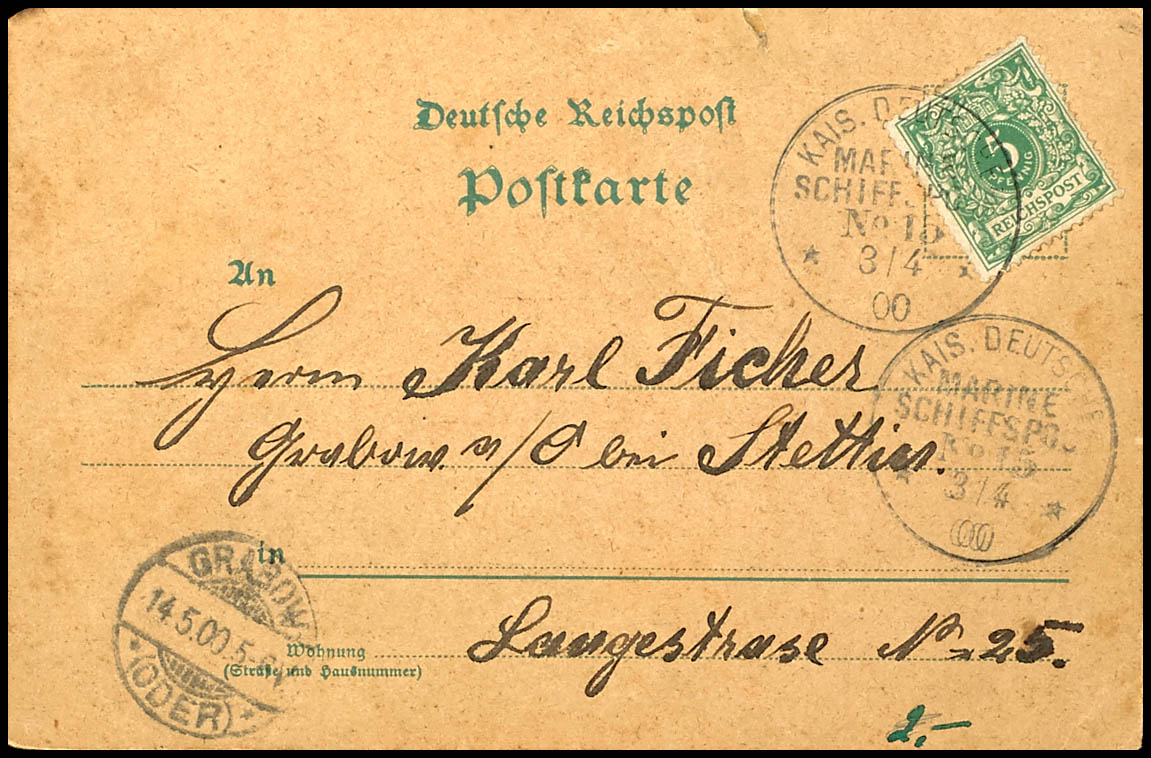 Deutsche Reichspost
Postkarte
KAIS. DEUTSCHE
MARINE
SCHIFFSPOST
No 15
3/4
00
5
PFENNIG
REICHSPOST
An
Herrn Karl Ficher
Grabow a/O bei Stettin.
KAIS. DEUTSCHE
MARINE
SCHIFFSPOST
No 15
3/4
00
in
GRABOW
14.5.00.5-6N
(ODER)
Langestrase No 25.
Wohnung
(Straße und Hausnummer)
2.-